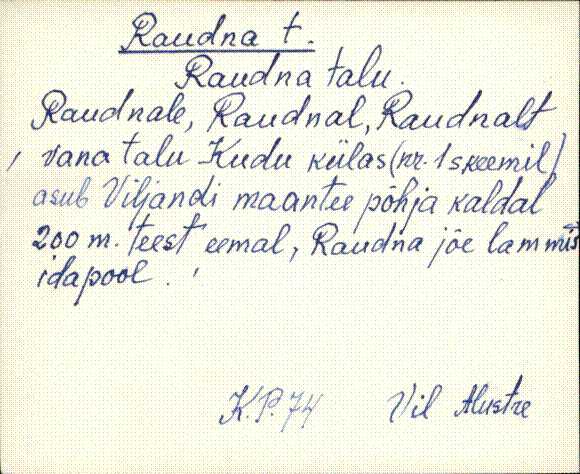 Raudna t.
Raudna talu.
Raudnale, Raudnal, Raudnalt
, vana talu Kudu külas (nr. 1 skeemil)
asub Viljandi maantee põhja kaldal
200 m. teest eemal, Raudna jõe lammist
idapool.
K.P. 74 Vil Alustre